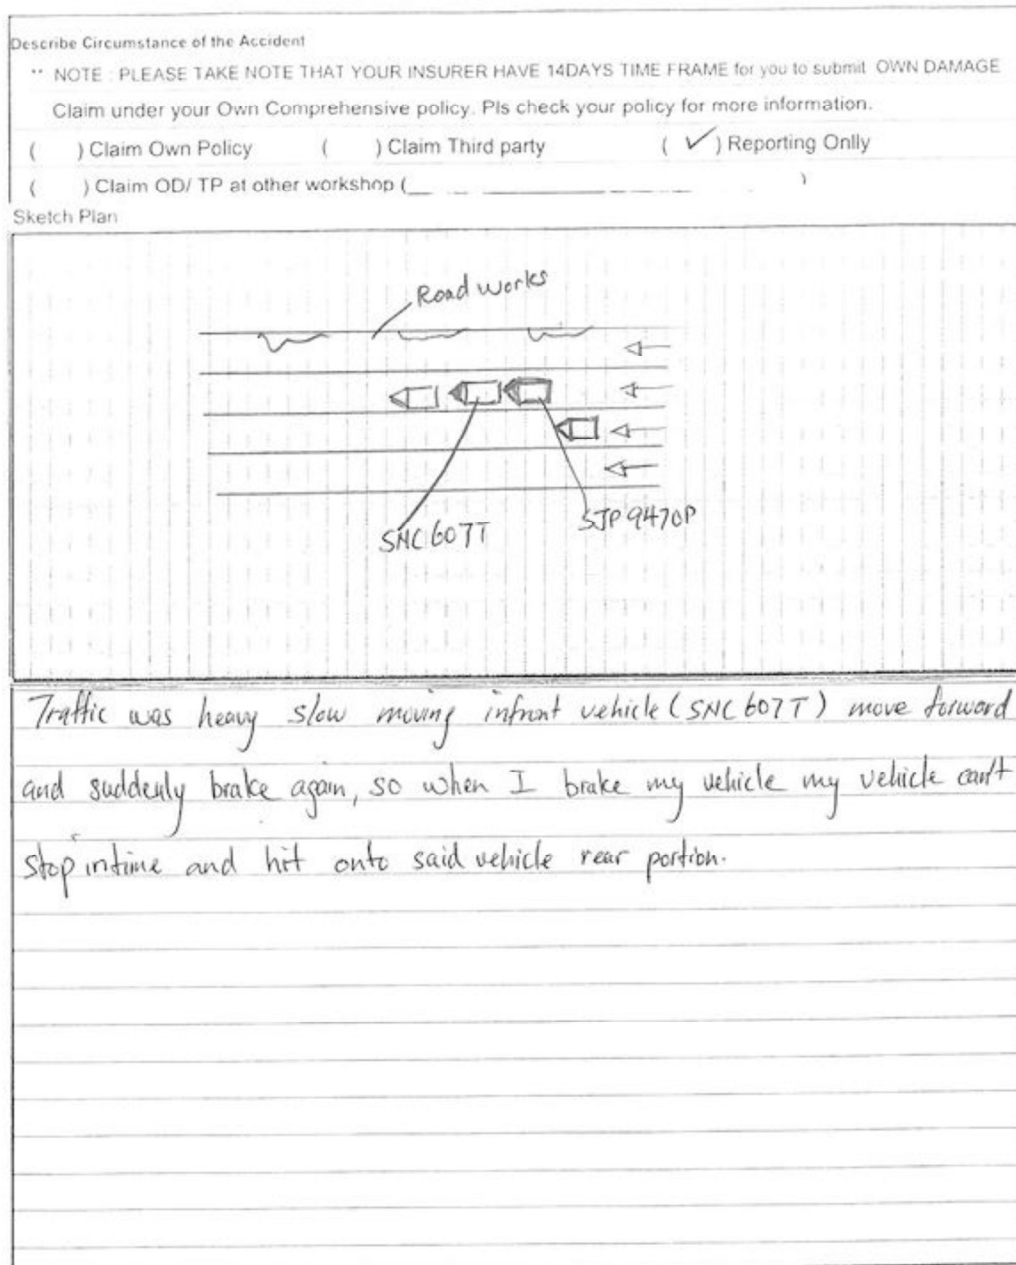 Describe Circumstance of the Accident
** NOTE : PLEASE TAKE NOTE THAT YOUR INSURER HAVE 14DAYS TIME FRAME for you to submit OWN DAMAGE
Claim under your Own Comprehensive policy. Pls check your policy for more information.
( ) Claim Own Policy ( ) Claim Third party ( ✓ ) Reporting Onlly
( ) Claim OD/ TP at other workshop (____________________)
Sketch Plan
Road works
SNC607T
SJP9470P
Traffic was heavy slow moving infront vehicle (SNC607T) move forward
and suddenly brake again, so when I brake my vehicle my vehicle can't
stop intime and hit onto said vehicle rear portion.